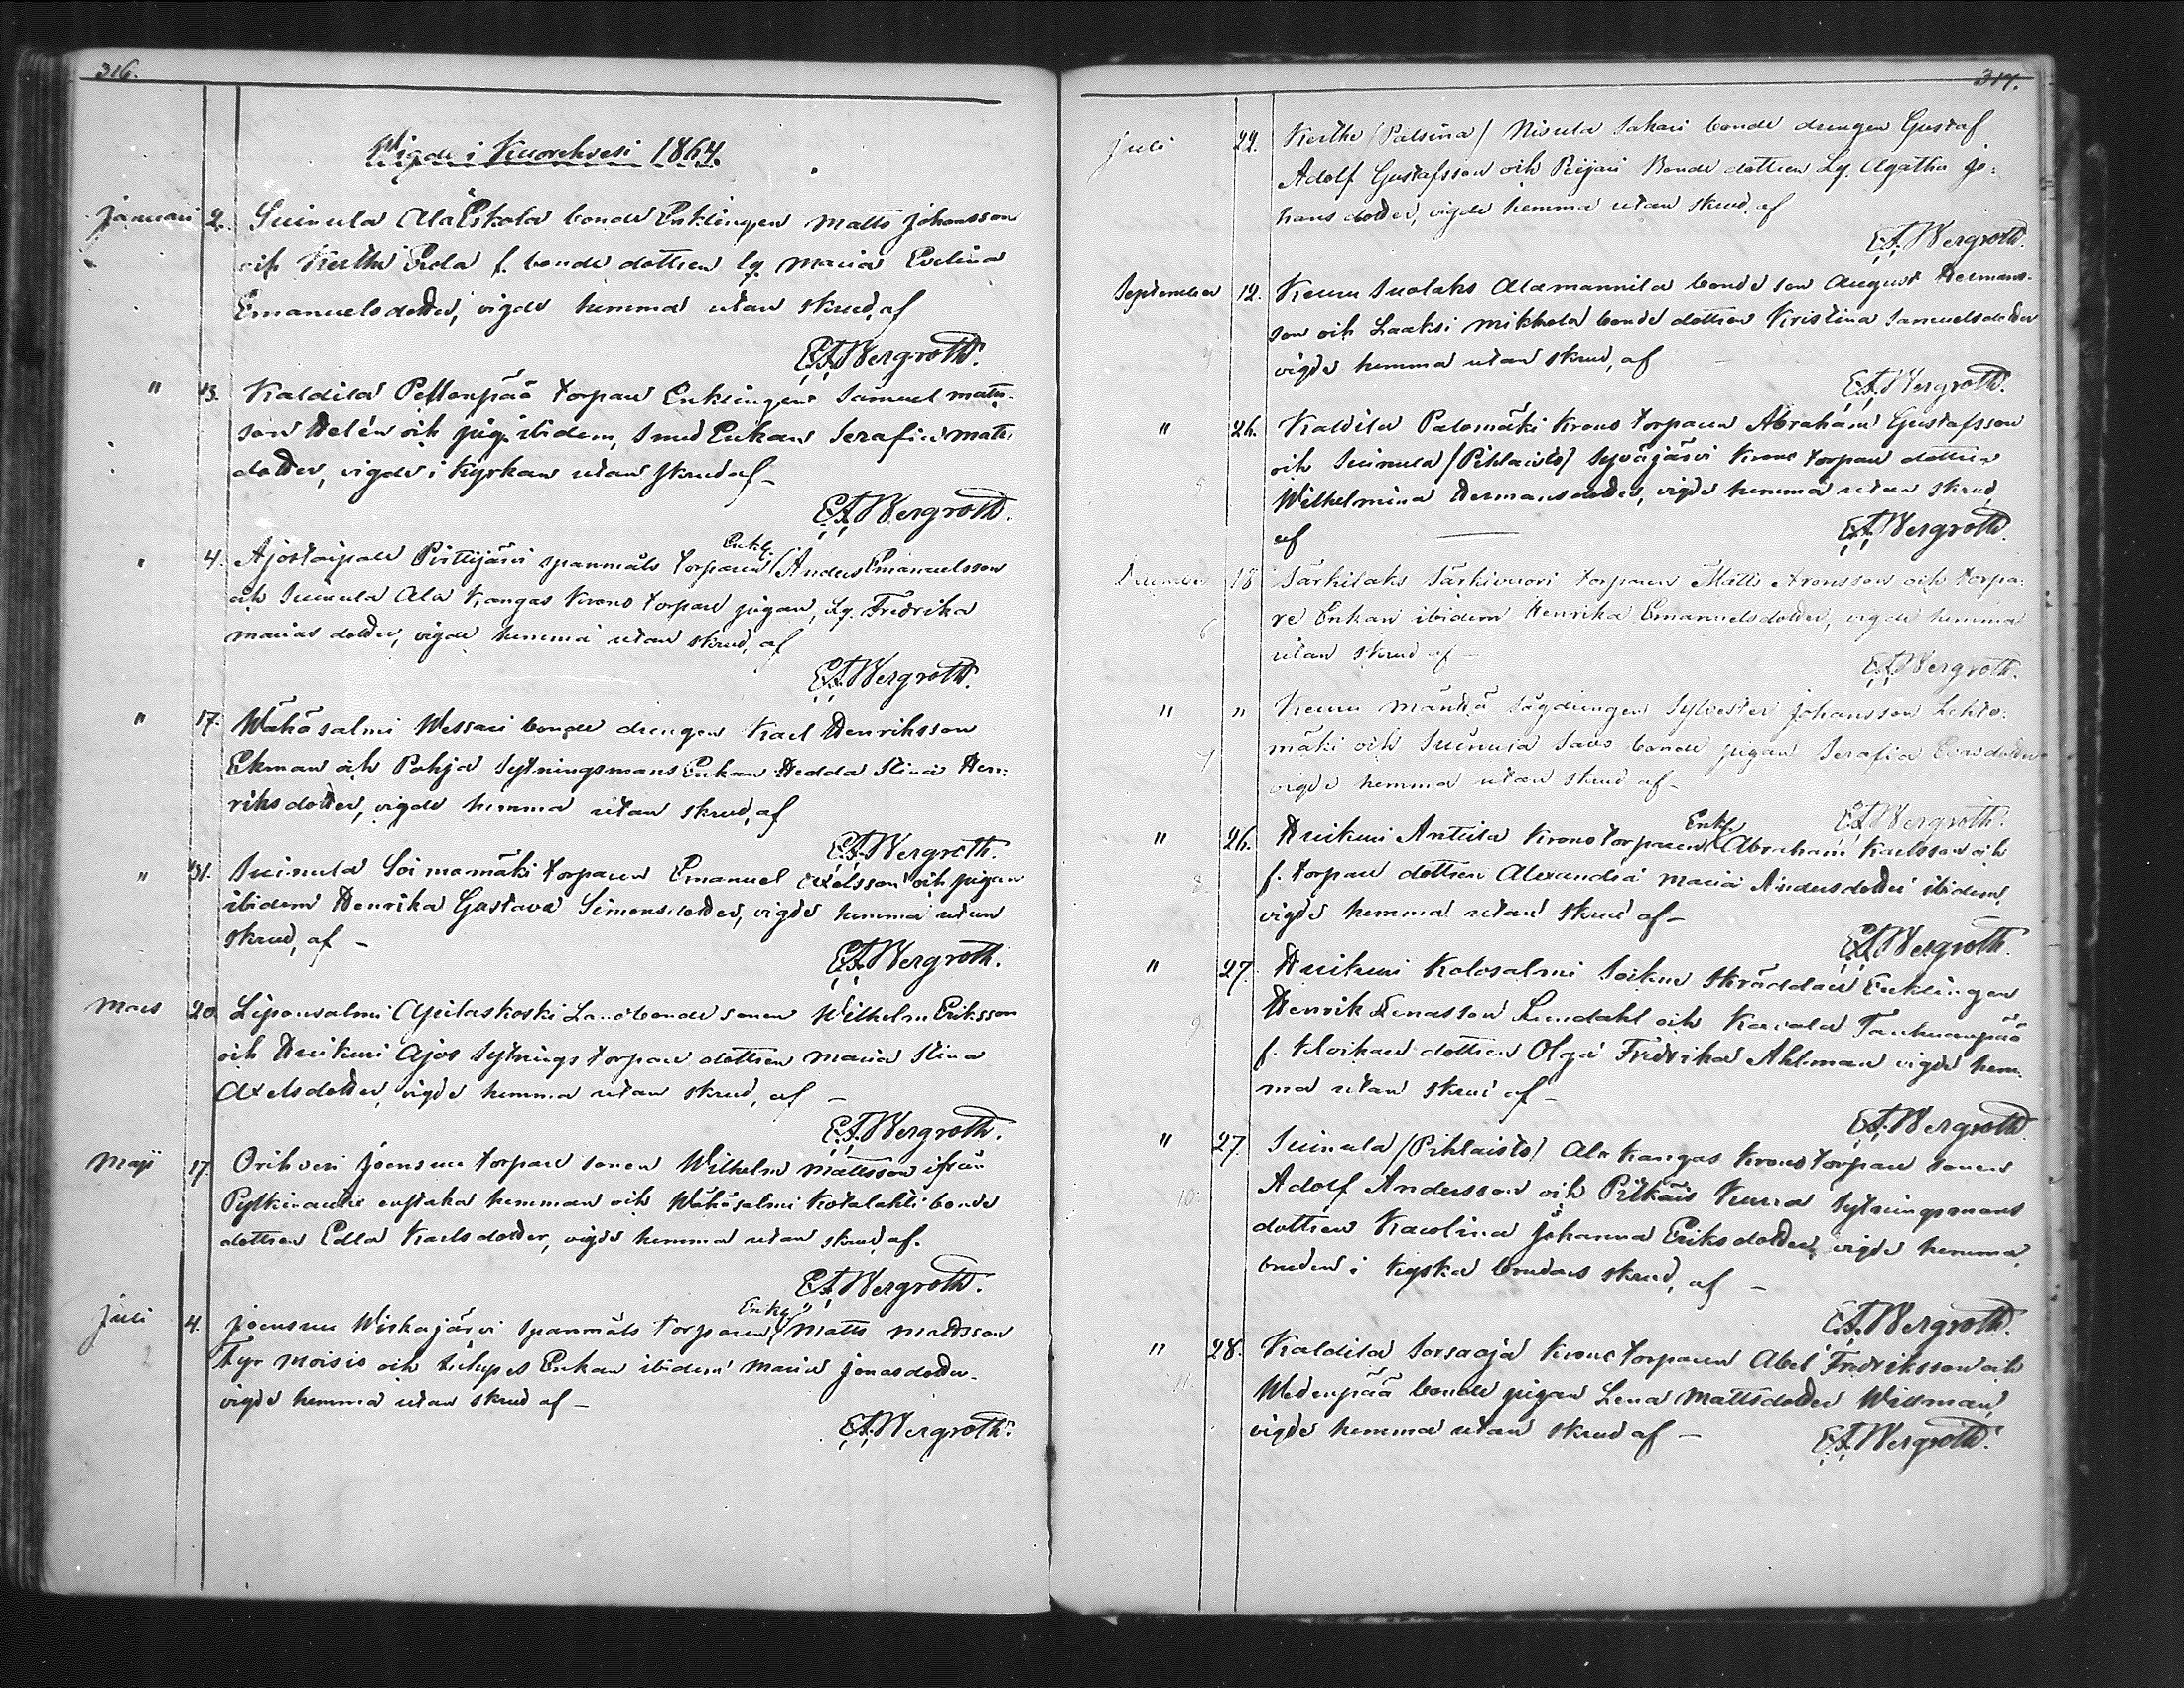 316.
Vigde i Kuorehvesi 1864.
Januari 2. Suinula Ala Eskola bonde Enklingen Matts Johansson
och Kerthe Erola f. bonde dottren lg. Maria Evelina
Emanuelsdotter, vigde hemma utan skrud, af
E.A. Wergroth.
" 3. Kaldila torpare Enklingen Samuel Matts-
son Helén och pig. ibidem, Smed Enkan Serafia Matts
dotter, vigde i Kyrkan utan skrud af –
E.A. Wergroth.
" 4. Ajostaipale Pirttijärvi spanmåls torparen Enkl. Anders Emanuelsson
och Suinula Ala Kangas Krono torpare pigan, Lg. Fredrika
Marias dotter, vigde hemma utan skrud, af
E.A. Wergroth.
" 17. Wähäsalmi Wessari bonde drengen Karl Henriksson
Ekman och Pohja Sytningsmans Enkan Hedda Stina Hen-
riksdotter, vigde hemma utan skrud, af
E.A. Wergroth.
" 31. Suinula Soimamäki torparen Emanuel Axelsson och pigan
ibidem Henrika Gustava Simonsdotter, vigde hemma utan
skrud, af –
E.A. Wergroth.
Mars 20. Liponsalmi Apilaskoski Landbonde sonen Wilhelm Eriksson
och Huikuri Ajos Sytnings torpare dottren Maria Stina
Axelsdotter, vigde hemma utan skrud, af –
E.A. Wergroth.
Maji 17. Orihvesi Joensuu torpare sonen Wilhelm Mattsson ifrån
hemman och Wähäsalmi Kotalahti bonde
dottren Edla Karlsdotter, vigde hemma utan skrud, af.
E.A. Wergroth.
Juli 4. Joensuu Wiskajärvi spanmåls torparen Enkl. Matts Mattsson
Tyrmoisio och Enkan ibidem Maria Jonasdotter.
vigde hemma utan skrud af –
E.A. Wergroth.
317.
Juli 22. Kerthe (Palsina) Nisula Sakari bonde drengen Gustaf
Adolf Gustafsson och Reijari Bonde dottren Lg. Agatha Jo-
hans dotter, vigde hemma utan skrud, af
E.A. Wergroth.
September 12. Keuru Suolaks Alamannila bonde son August Hermans-
son och Laaksi Mikkola bonde dottren Kristina Samuelsdotter
vigde hemma utan skrud, af
E.A. Wergroth.
" 26. Kaldila Palomäki Krono torparen Abraham Gustafsson
och Suinula (Pihlaisto) Syväjärvi Krono torpare dottren
Wilhelmina Hermansdotter, vigde hemma utan skrud
af
E.A. Wergroth.
December 18 Särkilaks Särkivuori torparen Matts Aronsson och torpa-
re Enkan ibidem Henrika Emanuelsdotter, vigde hemma
utan skrud af –
E.A. Wergroth.
" " Keuru Mänttä Sågdrengen Sylvester Johansson Lehto-
mäki och Suinula Savo bonde pigan Serafia
vigde hemma utan skrud af –
E.A. Wergroth.
" 26. Huikuri Anttila Krono torparen Enkl. Abraham Karlsson och
f. torpare dottren Alexandra Maria Andersdotter ibidem,
vigde hemma utan skrud af –
E.A. Wergroth.
" 27. Huikuri Kolosalmi Soiku skräddare Enklingen
Henrik Lundahl och
f. Klockare dottren Olga Fredrika Ahlman vigde hem-
ma utan skrud af –
E.A. Wergroth.
" 27. Suinula (Pihlaisto) Ala Kangas Krono torpare sonen
Adolf Andersson och Pitkäis Kurra Sytningsmans
dottren Karolina Johanna Eriksdotter, vigde hemma,
bruden i Kyrko brudens skrud, af –
E.A. Wergroth.
" 28. Kaldila Sorsaoja Krono torparen Abel Fredriksson och
Wedenpää bonde pigan Lena Mattsdotter Widman,
vigde hemma utan skrud af –
E.A. Wergroth.